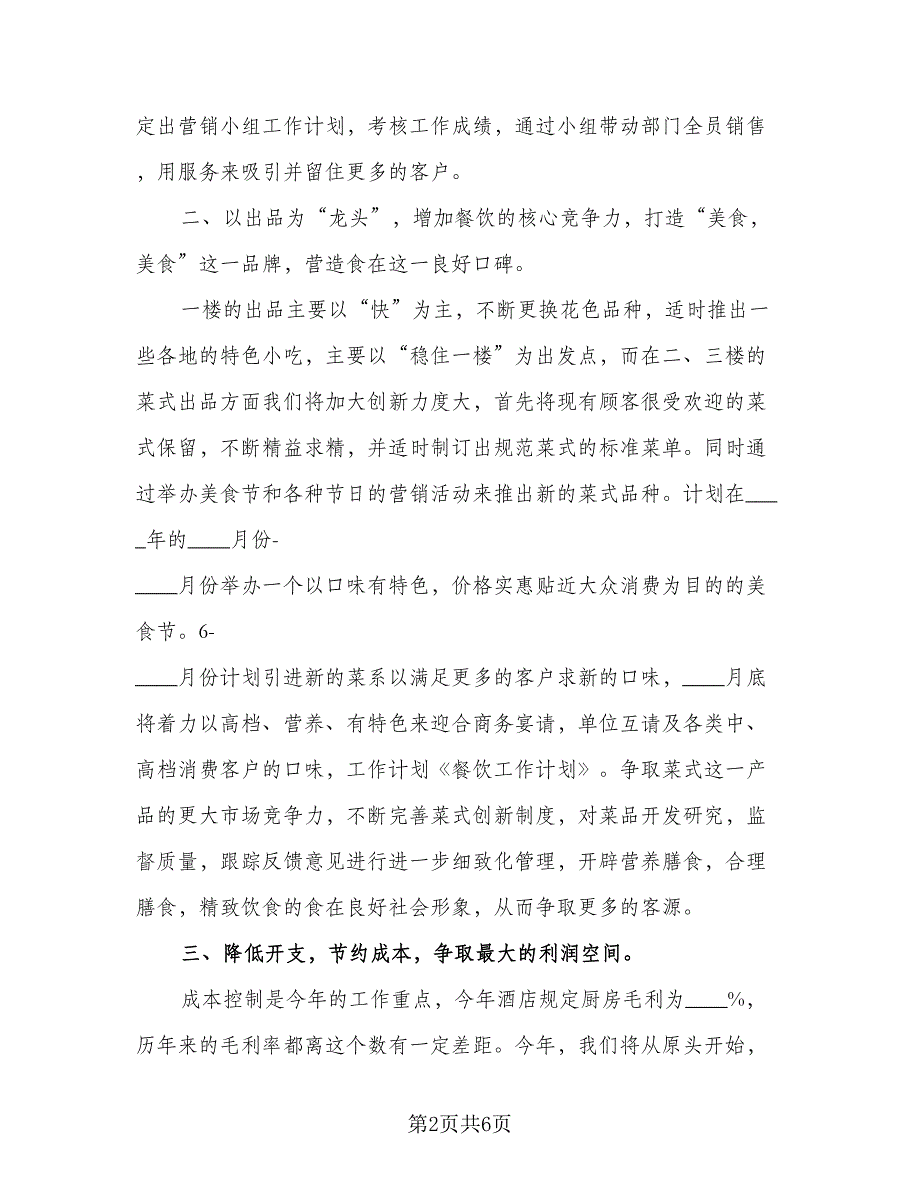 定出营销小组工作计划，考核工作成绩，通过小组带动部门全员销售
，用服务来吸引并留住更多的客户。
二、以出品为“龙头”，增加餐饮的核心竞争力，打造“美食，
美食”这一品牌，营造食在这一良好口碑。
一楼的出品主要以“快”为主，不断更换花色品种，适时推出一
些各地的特色小吃，主要以“稳住一楼”为出发点，而在二、三楼的
菜式出品方面我们将加大创新力度大，首先将现有顾客很受欢迎的菜
式保留，不断精益求精，并适时制订出规范菜式的标准菜单。同时通
过举办美食节和各种节日的营销活动来推出新的菜式品种。计划在___
_年的____月份-
____月份举办一个以口味有特色，价格实惠贴近大众消费为目的的美
食节。6-
____月份计划引进新的菜系以满足更多的客户求新的口味，____月底
将着力以高档、营养、有特色来迎合商务宴请，单位互请及各类中、
高档消费客户的口味，工作计划《餐饮工作计划》。争取菜式这一产
品的更大市场竞争力，不断完善菜式创新制度，对菜品开发研究，监
督质量，跟踪反馈意见进行进一步细致化管理，开辟营养膳食，合理
膳食，精致饮食的食在良好社会形象，从而争取更多的客源。
三、降低开支，节约成本，争取最大的利润空间。
成本控制是今年的工作重点，今年酒店规定厨房毛利为____%，
历年来的毛利率都离这个数有一定差距。今年，我们将从原头开始，
第2页共6页